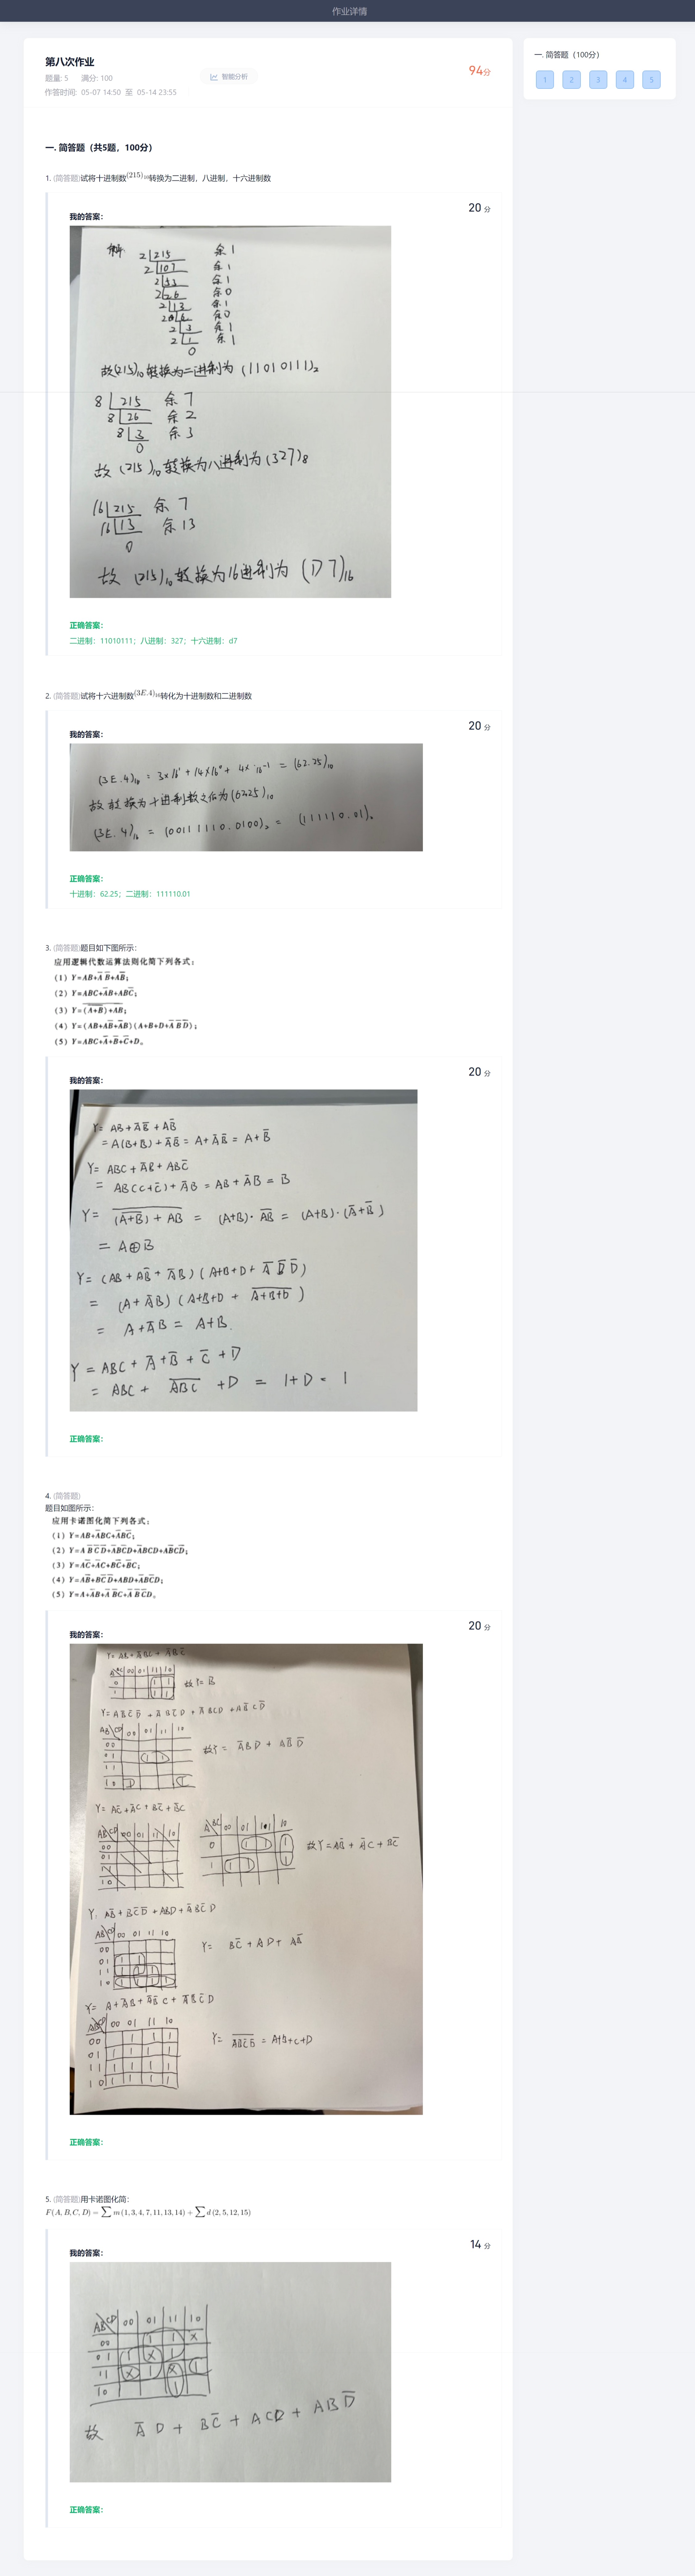 作业详情
第八次作业
题量: 5 满分: 100
作答时间: 05-07 14:50 至 05-14 23:55
智能分析
94分
一. 简答题（100分）
1 2 3 4 5
一. 简答题（共5题，100分）
1. (简答题)试将十进制数(215)₁₀转换为二进制，八进制，十六进制数
20 分
我的答案:
解
2 215 余 1
2 107 余 1
2 53 余 1
2 26 余 0
2 13 余 1
2 6 余 0
2 3 余 1
2 1 余 1
0
故(215)₁₀转换为二进制为 (11010111)₂
8 215 余 7
8 26 余 2
8 3 余 3
0
故 (215)₁₀转换为八进制为 (327)₈
16 215 余 7
16 13 余 13
0
故 (215)₁₀转换为16进制为 (D7)₁₆
正确答案:
二进制：11010111；八进制：327；十六进制：d7
2. (简答题)试将十六进制数(3E.4)₁₆转化为十进制数和二进制数
20 分
我的答案:
(3E.4)₁₆ = 3×16¹ + 14×16⁰ + 4×16⁻¹ = (62.25)₁₀
故转换为十进制数之后为(62.25)₁₀
(3E.4)₁₆ = (00111110.0100)₂ = (111110.01)₂
正确答案:
十进制：62.25；二进制：111110.01
3. (简答题)题目如下图所示:
应用逻辑代数运算法则化简下列各式:
(1) Y=AB+A̅ B̅+AB̅;
(2) Y=ABC+A̅B+ABC̅;
(3) Y=(A+B)+AB;
(4) Y=(AB+AB̅+A̅B)(A+B+D+A̅ B̅ D̅);
(5) Y=ABC+A̅+B̅+C̅+D。
20 分
我的答案:
Y= AB + A̅B̅ + AB̅
= A(B+B̅) + A̅B̅ = A + A̅B̅ = A + B̅
Y= ABC + A̅B + ABC̅
= AB(C+C̅) + A̅B = AB + A̅B = B
Y= (A+B) + AB = (A+B)· AB = (A+B)·(A̅+B̅)
= A⊕B
Y= (AB + AB̅ + A̅B)(A+B+D + A̅ B̅ D̅)
= (A + A̅B)(A+B+D + A+B+D)
= A + A̅B = A+B.
Y = ABC + A̅ + B̅ + C̅ + D
= ABC + ABC + D = 1+D = 1
正确答案:
4. (简答题)
题目如图所示:
应用卡诺图化简下列各式:
(1) Y=AB+A̅BC+A̅BC̅;
(2) Y=A B̅ C̅ D̅+A̅BC̅D+A̅BCD+AB̅CD̅;
(3) Y=AC̅+A̅C+BC̅+B̅C;
(4) Y=AB̅+BC̅ D̅+ABD+A̅BC̅D;
(5) Y=A+A̅B+A̅ B̅C+A̅ B̅ C̅D。
20 分
我的答案:
Y= AB + A̅BC + A̅BC̅
A BC 00 01 11 10
0 1 1
1 1 1
故Y= B
Y= AB̅C̅D̅ + A̅BC̅D + A̅BCD + AB̅CD̅
AB CD 00 01 11 10
00
01 1 1
11
10 1 1
故Y= A̅BD + AB̅D̅
Y= AC̅ + A̅C + BC̅ + B̅C
AB CD 00 01 11 10
00
01
11
10
A BC 00 01 11 10
0 1 1 1
1 1 1 1
故Y=AB̅ + A̅C + BC̅
Y= AB̅ + BC̅D̅ + ABD + A̅BC̅D
AB CD 00 01 11 10
00
01 1 1
11 1 1 1
10 1 1 1 1
Y= BC̅ + AD + AB̅
Y= A + A̅B + A̅B̅C + A̅B̅C̅D
AB CD 00 01 11 10
00 1 1 1
01 1 1 1 1
11 1 1 1 1
10 1 1 1 1
Y= A̅B̅C̅D̅ = A+B+C+D
正确答案:
5. (简答题)用卡诺图化简:
F(A,B,C,D) = ∑ m(1,3,4,7,11,13,14) + ∑ d(2,5,12,15)
14 分
我的答案:
AB CD 00 01 11 10
00 1 1 X
01 1 X 1
11 X 1 X 1
10 1
故 A̅D + BC̅ + ACD + ABD̅
正确答案: